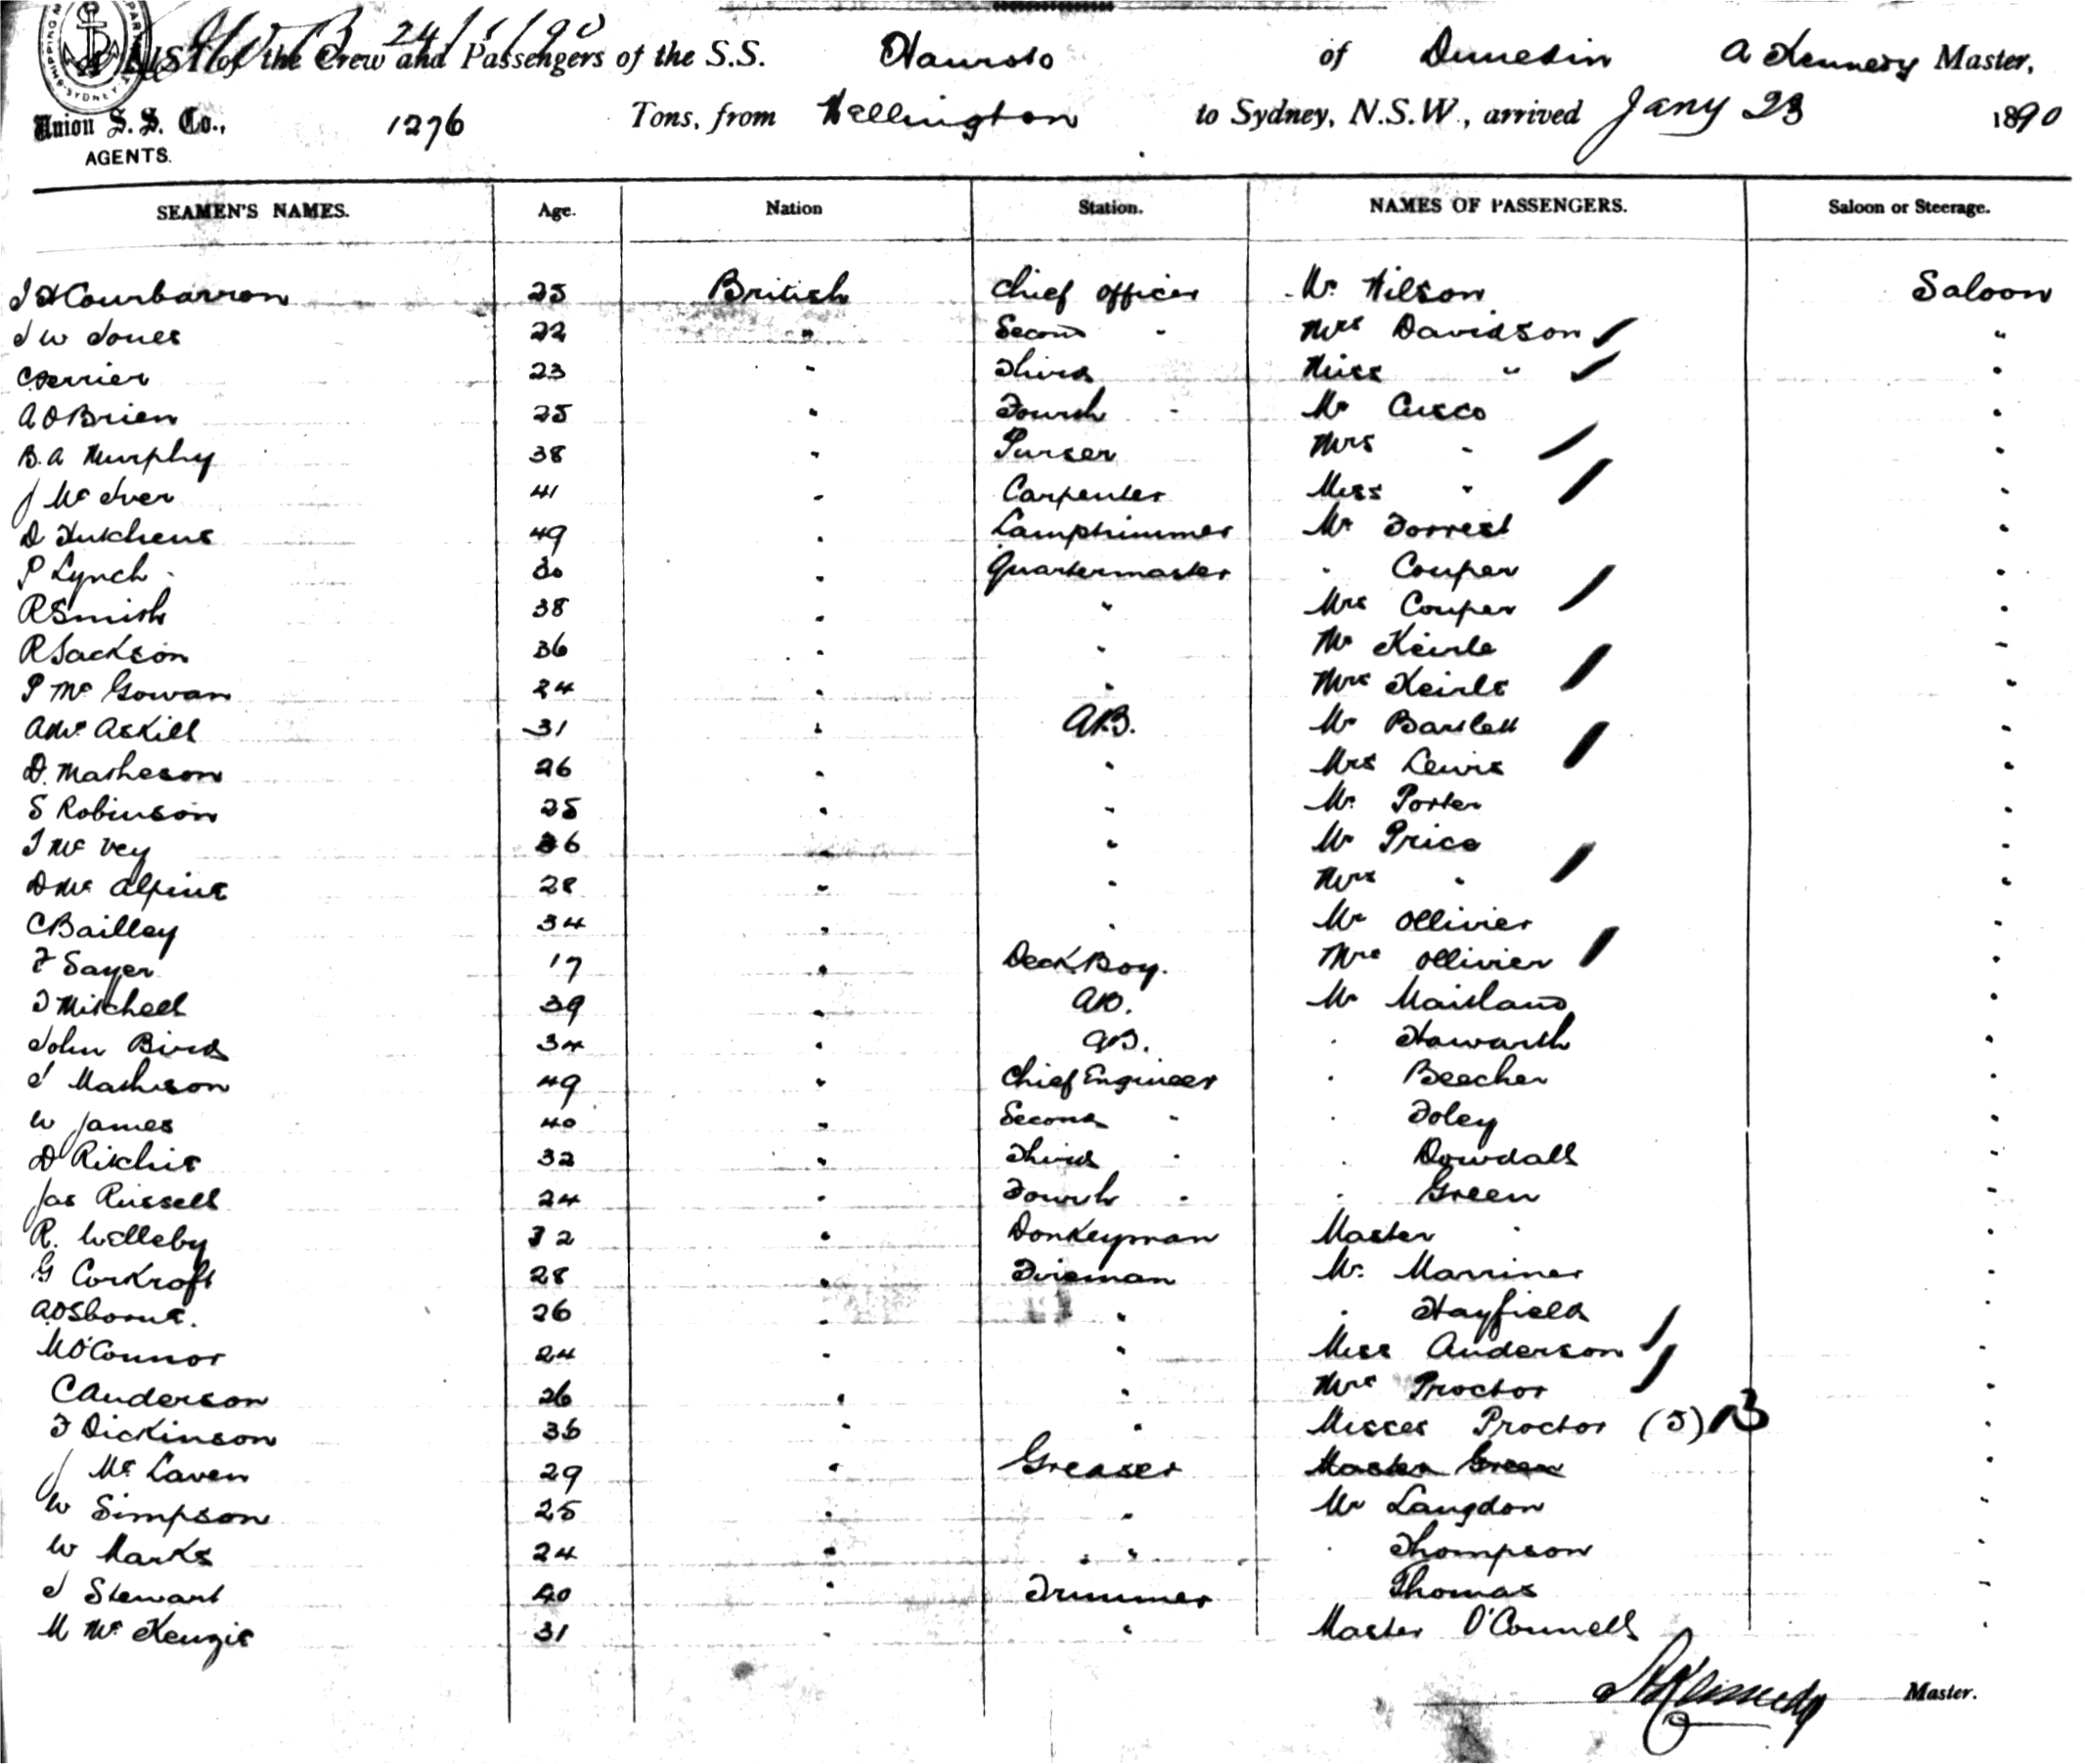 24/1/90
LIST of the Crew and Passengers of the S.S. Hauroto of Dunedin A Kennedy Master,
Union S. S. Co., AGENTS. 1276 Tons, from Wellington to Sydney, N.S.W., arrived Jany 23 1890
SEAMEN'S NAMES. Age. Nation Station. NAMES OF PASSENGERS. Saloon or Steerage.
25 British Chief Officer Mr Wilson Saloon
J W Jones 22 " Second " Mrs Davidson "
C Ferrier 23 " Third Miss " "
A O'Brien 25 " Fourth " Mr Cusco "
B. A Murphy 38 " Purser Mrs " "
J McIver 41 " Carpenter Miss " "
D Hutchens 49 " Lamptrimmer Mr Forrest "
P Lynch 30 " Quartermaster " Couper "
R Smith 38 " " Mrs Couper "
R Jackson 36 " " Mr Keirle "
P McGowan 24 " " Mrs Keirle "
A McAskill 31 " A.B. Mr Bartlett "
D. Matheson 26 " " Mrs Lewis "
S Robinson 25 " " Mr. Porter "
J McVey 36 " " Mr Price "
D McAlpine 28 " " Mrs " "
C Bailley 34 " " Mr Ollivier "
F Sayer 17 " Deck Boy. Mrs Ollivier "
J Mitchell 39 " AB. Mr Maitland "
John Bird 34 " AB. " Howarth "
J Mathison 49 " Chief Engineer " Beecher "
W James 40 " Second " " Foley "
D Ritchie 32 " Third " " Dowdall "
Jas Russell 24 " Fourth " " Green "
R. Welleby 32 " Donkeyman Master " "
G Corkroft 28 " Fireman Mr. Marriner "
A Osborne. 26 " " " Hayfield "
M O'Connor 24 " " Miss Anderson "
C Anderson 26 " " Mrs Proctor "
F Dickinson 36 " " Misses Proctor (3) "
J McLaven 29 " Greaser Master Green "
W Simpson 25 " " Mr Langdon "
W Marks 24 " " " Thompson "
J Stewart 40 " Trimmer Thomas "
M McKenzie 31 " " Master O'Connell "
A Kennedy Master.